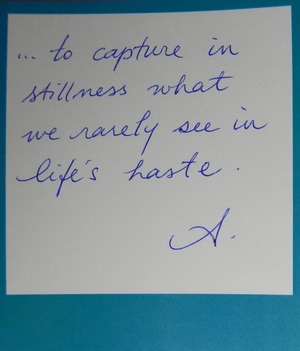 ... to capture in
stillness what
we rarely see in
life's haste.
A.